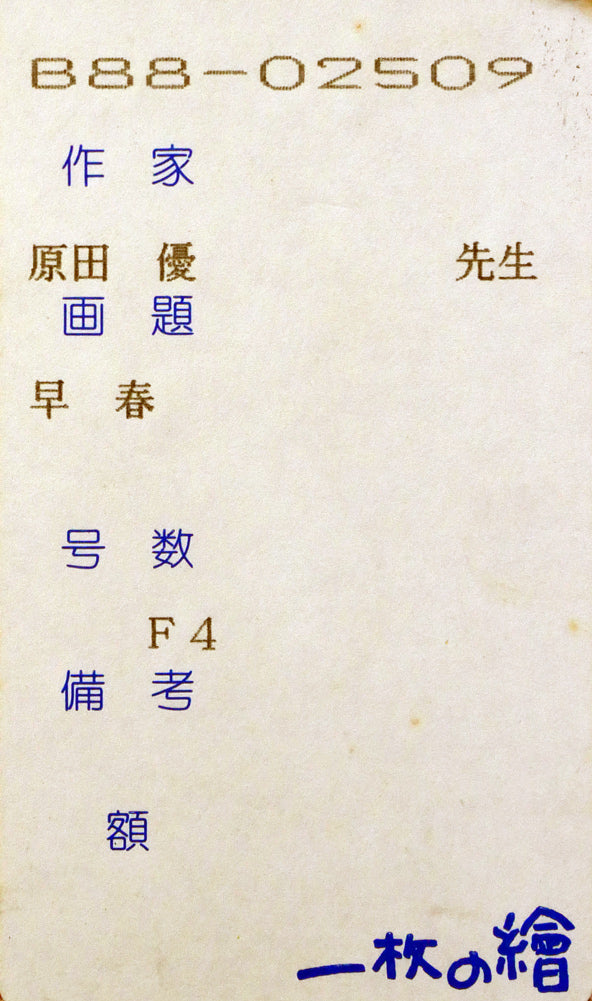 B88-02509
作 家
原田 優 先生
画 題
早 春
号 数
F4
備 考
額
一枚の繪